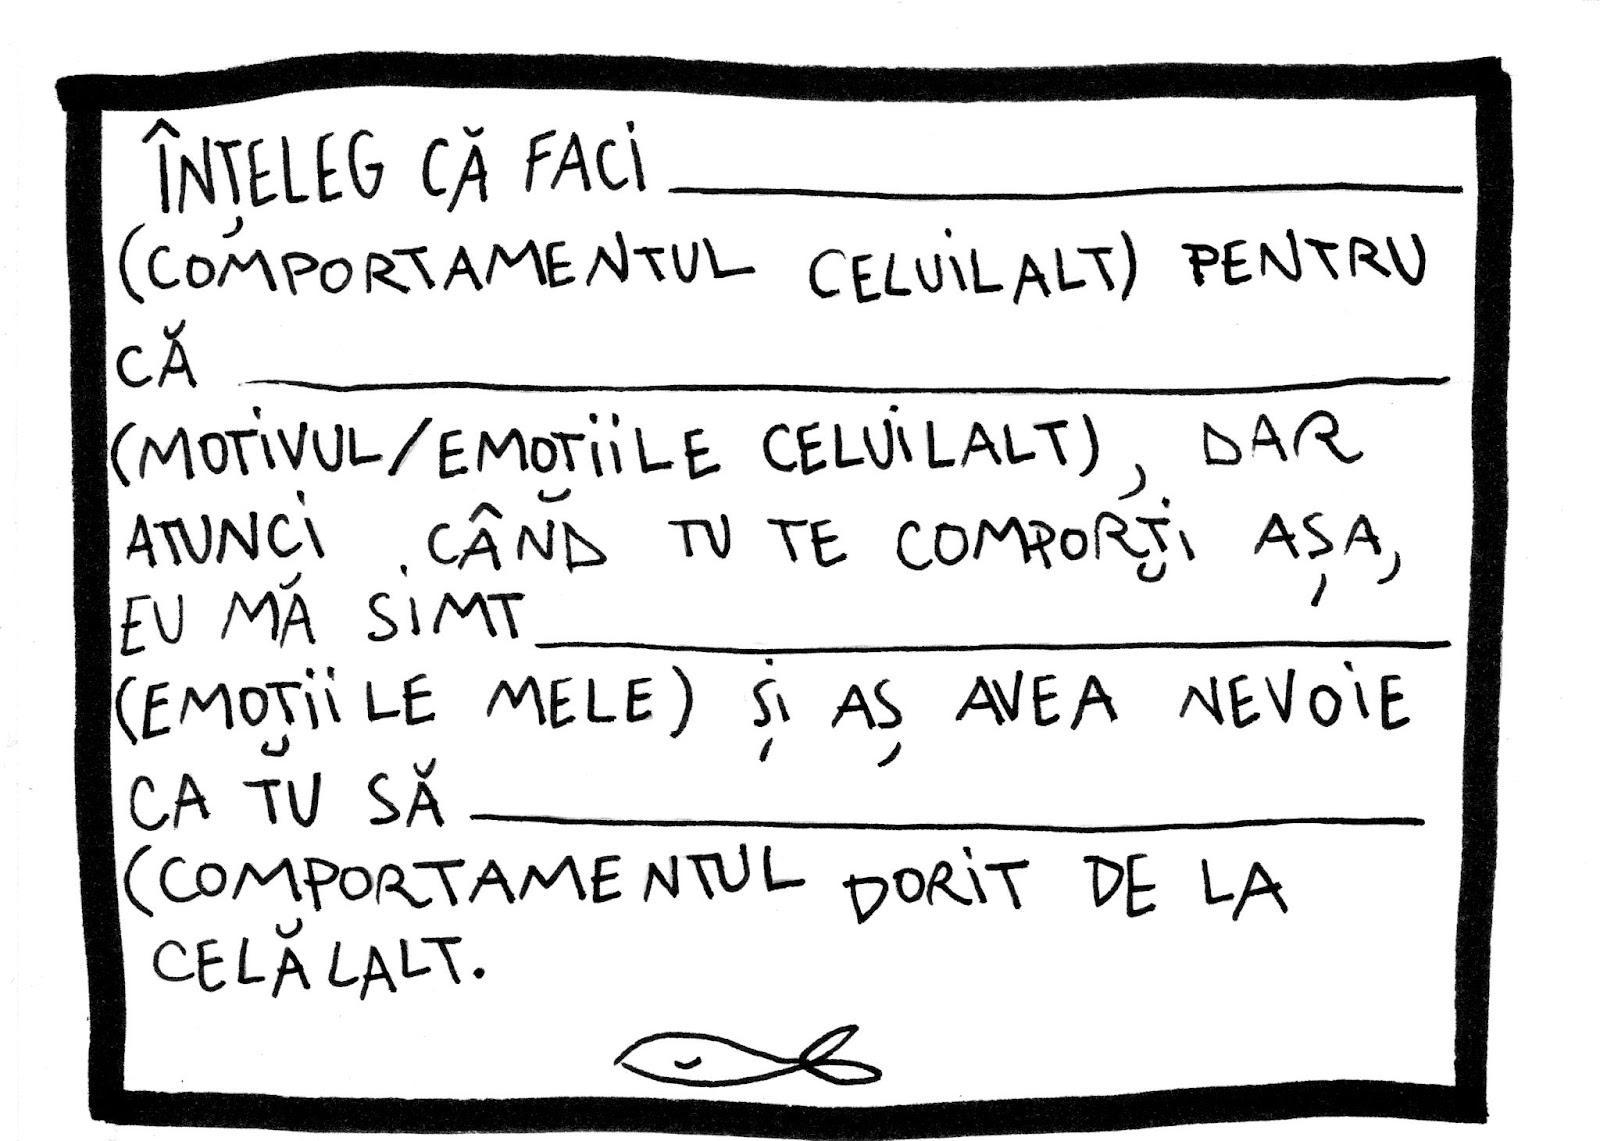 ÎNȚELEG CĂ FACI ____________
(COMPORTAMENTUL CELUILALT) PENTRU
CĂ ____________
(MOTIVUL/EMOȚIILE CELUILALT), DAR
ATUNCI CÂND TU TE COMPORȚI AȘA,
EU MĂ SIMT ____________
(EMOȚIILE MELE) ȘI AȘ AVEA NEVOIE
CA TU SĂ ____________
(COMPORTAMENTUL DORIT DE LA
CELĂLALT.